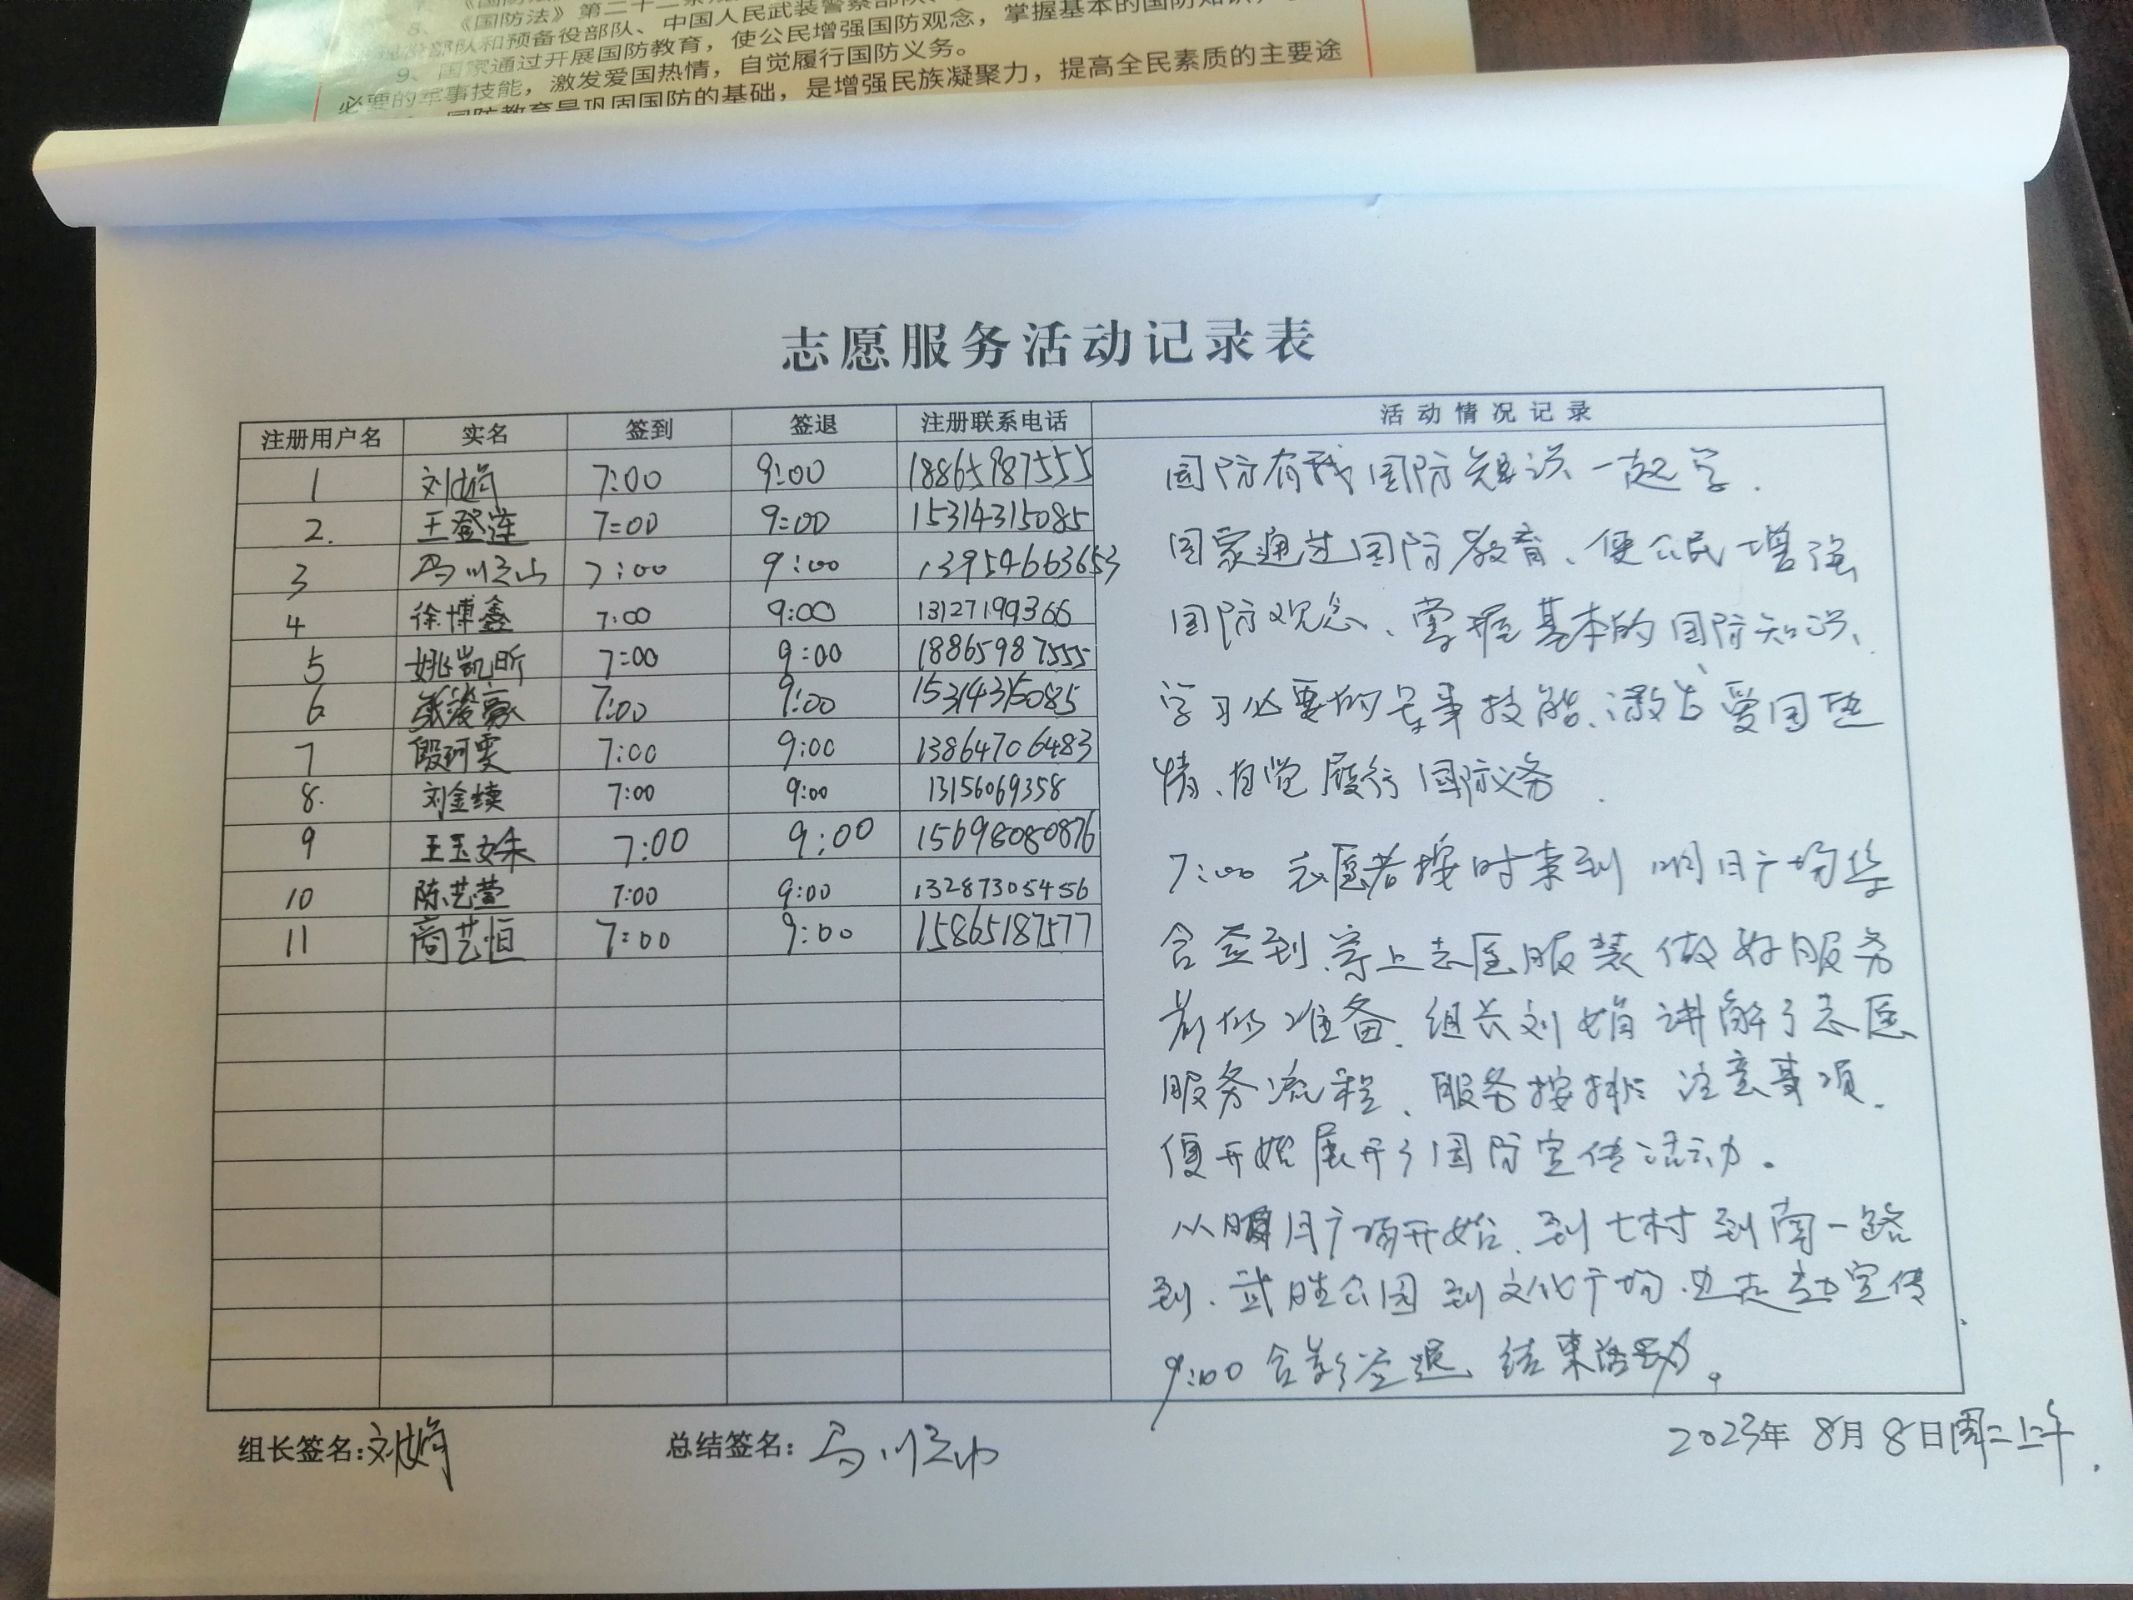 8、《国防法》第二十二条规
部队和预备役部队、中国人民武装警察部队、
9、国家通过开展国防教育，使公民增强国防观念，掌握基本的国防知识，
必要的军事技能，激发爱国热情，自觉履行国防义务。
国防教育是巩固国防的基础，是增强民族凝聚力，提高全民素质的主要途
志愿服务活动记录表
注册用户名 实名 签到 签退 注册联系电话 活动情况记录
1 刘娟 7:00 9:00 18865987555
2. 王登连 7:00 9:00 15314315085
3 7:00 9:00 13954663653
4 徐博鑫 7:00 9:00 13127199366
5 姚凯昕 7:00 9:00 18865987555
6 张濬豪 7:00 9:00 15314315085
7 殷珂雯 7:00 9:00 13864706483
8. 刘金续 7:00 9:00 13156069358
9 王玉姝 7:00 9:00 15698080876
10 陈艺萱 7:00 9:00 13287305456
11 商艺恒 7:00 9:00 15865187577
国防有我国防知识一起学.
国家通过国防教育、使公民增强
国防观念、掌握基本的国防知识、
学习必要的军事技能、激发爱国热
情、自觉履行国防义务.
7:00 志愿者按时来到明月广场集
合签到、穿上志愿服装做好服务
前的准备.组长刘娟讲解了志愿
服务流程、服务按排注意事项.
便开始展开了国防宣传活动。
从明月广场开始、到七村到南一路
到、武胜公园到文化广场.边走边宣传
9:00合影签退、结束活动。
组长签名:刘娟 总结签名:
2023年8月8日周二上午.